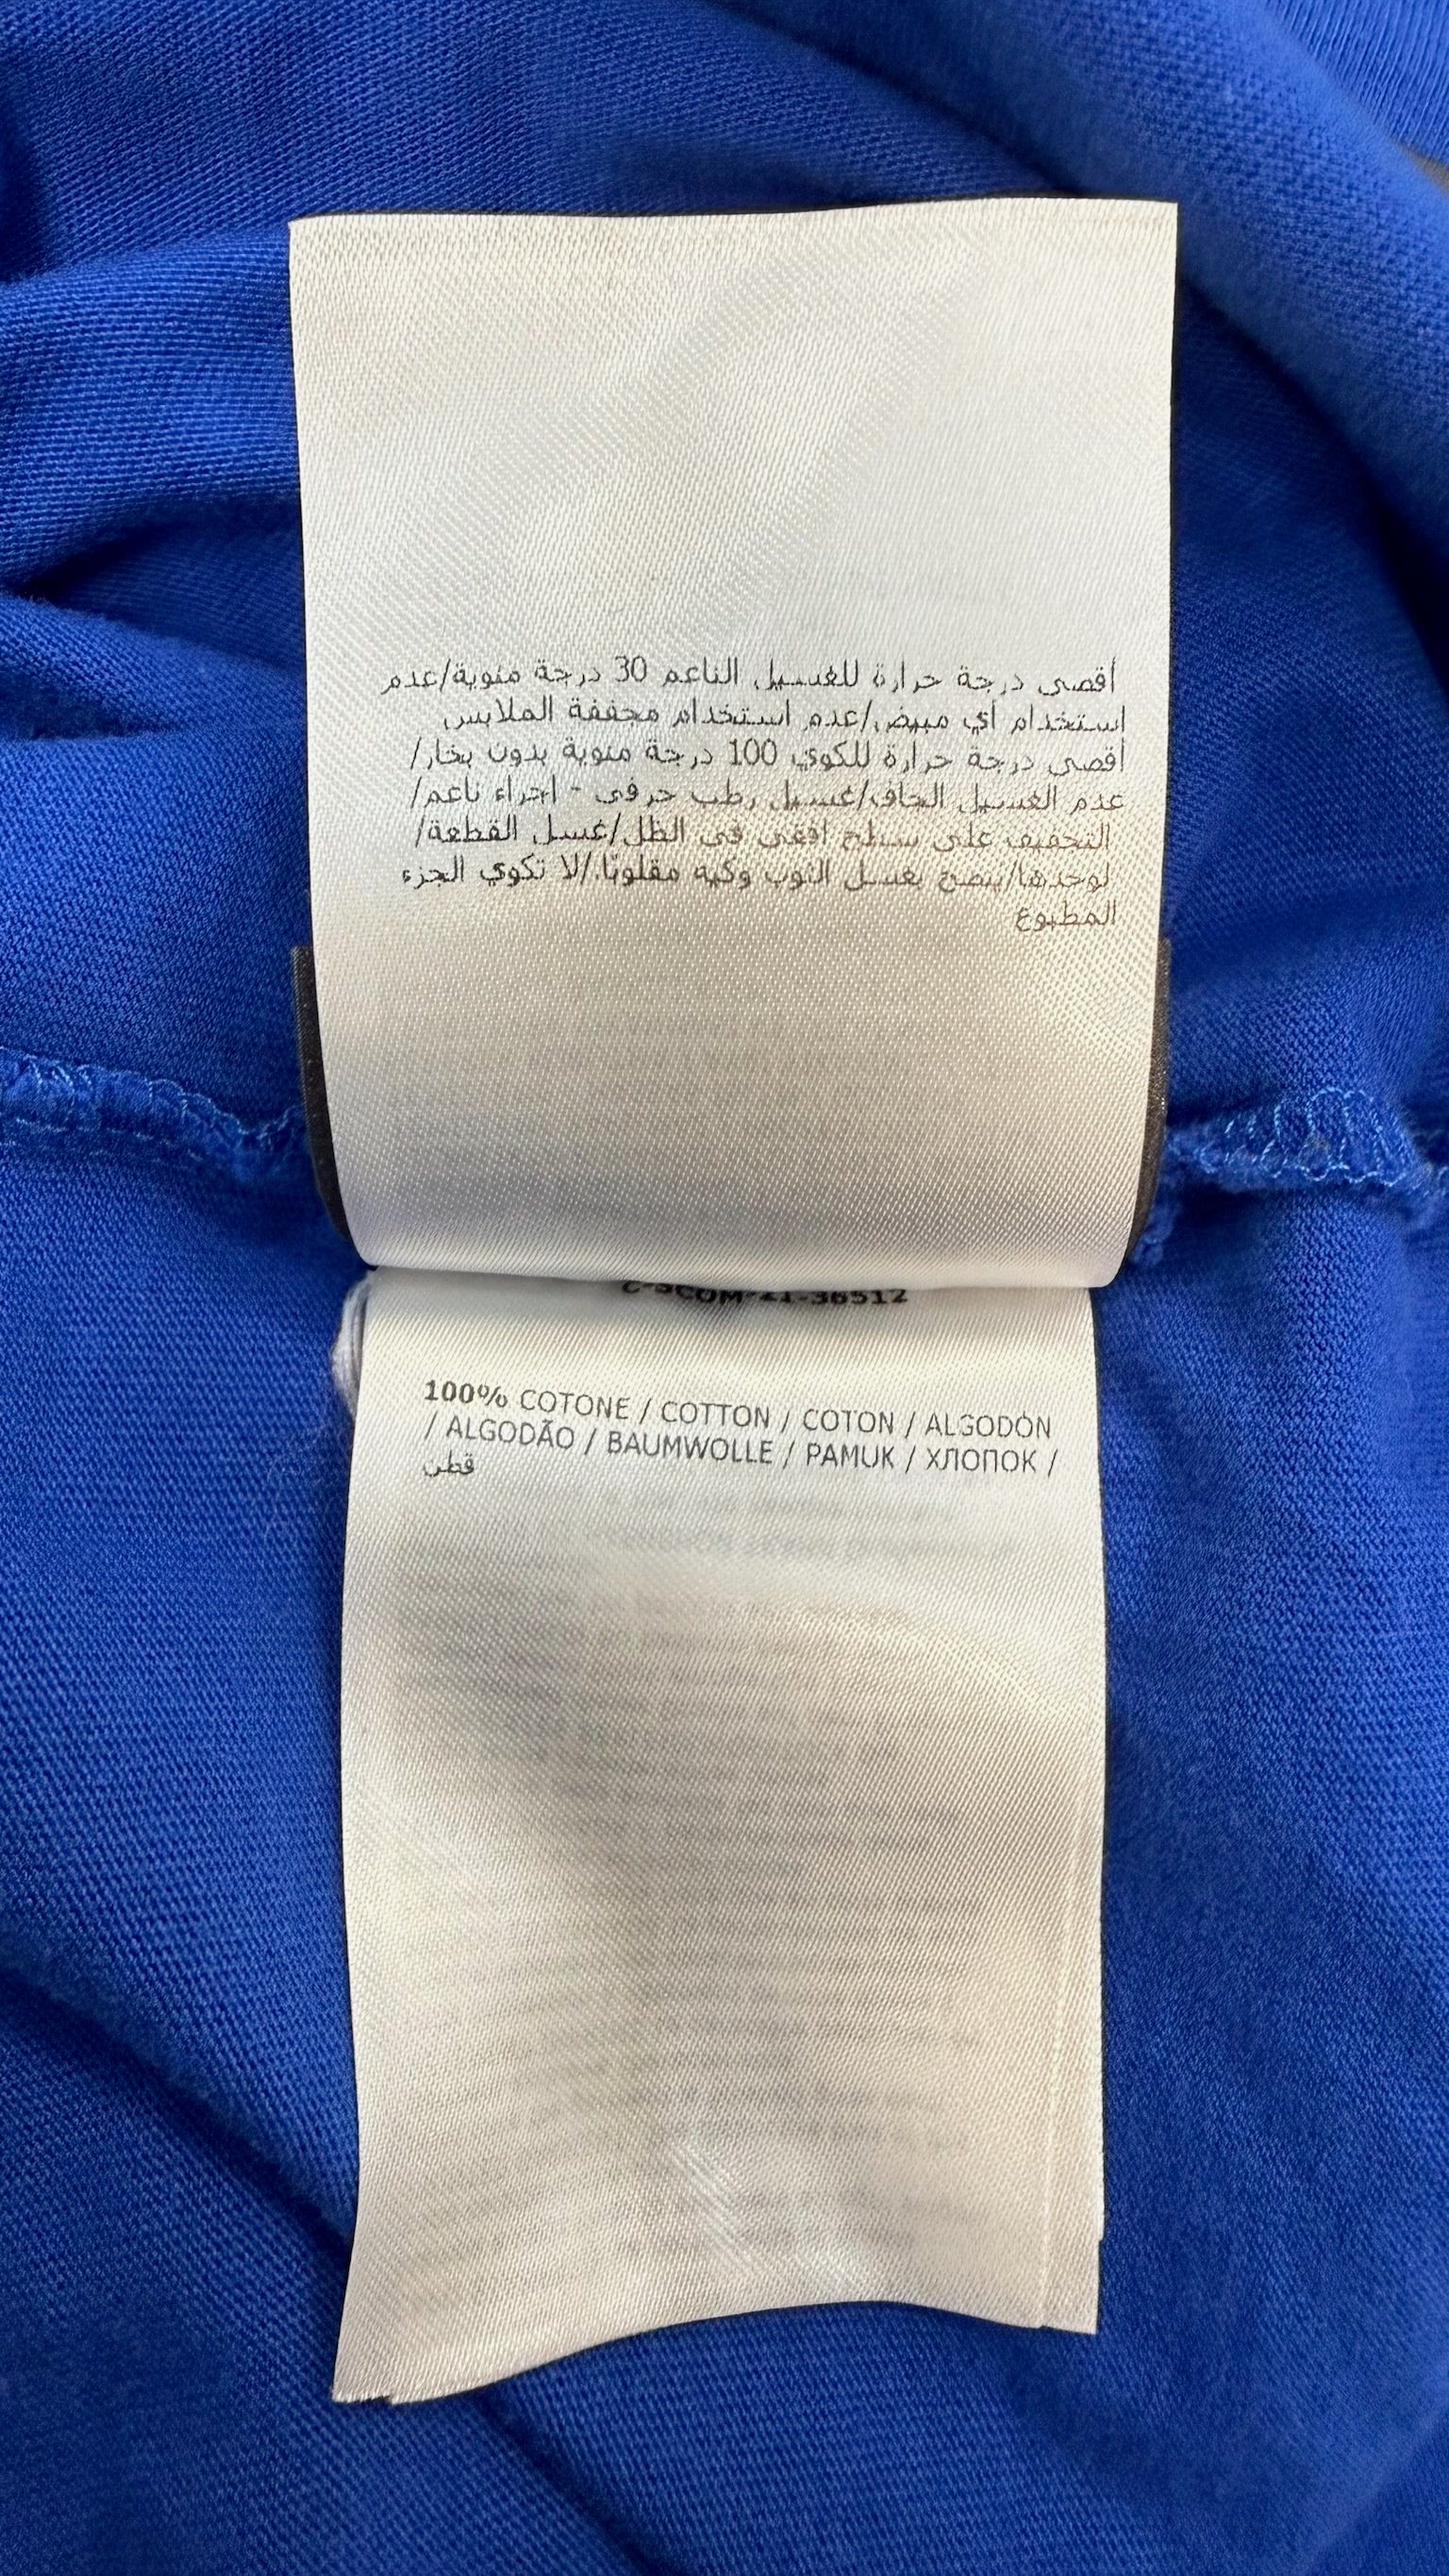 أقصى درجة حرارة للغسيل الناعم 30 درجة مئوية/عدم
استخدام أي مبيض/عدم استخدام مجففة الملابس
أقصى درجة حرارة للكوي 100 درجة مئوية بدون بخار/
عدم الغسيل الجاف/غسيل رطب حرفي - اجراء ناعم/
التجفيف على سطح افقي في الظل/غسل القطعة/
لوحدها/ينصح بغسل الثوب وكيه مقلوبًا./لا تكوي الجزء
المطبوع
36512
100% COTONE / COTTON / COTON / ALGODÓN
/ ALGODÃO / BAUMWOLLE / PAMUK / ХЛОПОК /
قطن